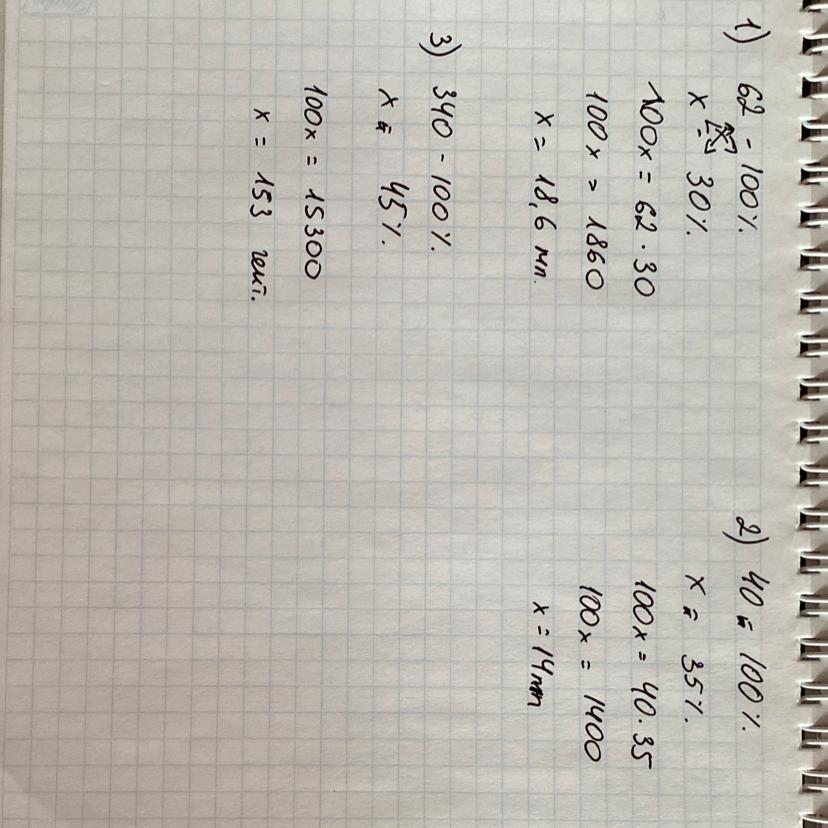 1) 62 - 100%
x - 30%
100x = 62 · 30
100x = 1860
x = 18,6 мл.
2) 40 = 100%
x = 35%
100x = 40 · 35
100x = 1400
x = 14
3) 340 - 100%
x = 45%
100x = 15300
x = 153